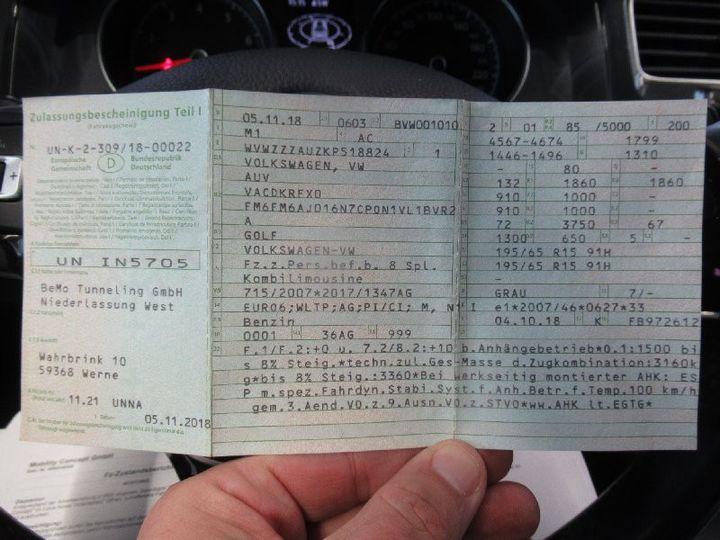 Zulassungsbescheinigung Teil I
(Fahrzeugschein)
Nr. UN-K-2-309/18-00022
Europäische Gemeinschaft
D
Bundesrepublik Deutschland
UN IN5705
BeMo Tunneling GmbH
Niederlassung West
Wahrbrink 10
59368 Werne
11.21 UNNA
05.11.2018
05.11.18 0603 BVW001010
M1 AC
WVWZZZAUZKP518824 1
VOLKSWAGEN, VW
AUV
VACDKRFX0
FM6FM6AJ016N7CP0N1VL1BVR2
A
GOLF
VOLKSWAGEN-VW
Fz.z.Pers.bef.b. 8 Spl.
Kombilimousine
715/2007*2017/1347AG
EURO6;WLTP;AG;PI/CI; M, N1 I
Benzin
0001 36AG 999
2 01 85 /5000 200
4567-4674 1799
1446-1496 1310
- 80 -
132 1860 1860
910 1000 -
910 1000 -
72 3750 67
1300 650 5 -
195/65 R15 91H
195/65 R15 91H
-
GRAU 7/-
e1*2007/46*0627*33
04.10.18 K FB972612
F.1/F.2:+0 u. 7.2/8.2:+10 b.Anhängebetrieb*0.1:1500 bi
s 8% Steig.*techn.zul.Ges-Masse d.Zugkombination:3160k
g*bis 8% Steig.:3360*Bei werkseitig montierter AHK: ES
P m.spez.Fahrdyn.Stabi.Syst.f.Anh.Betr.f.Temp.100 km/h
gem.3.Aend.VO.z.9.Ausn.VO.z.STVO*ww.AHK lt.EGTG*
Mobility Concept GmbH
Fz-Zustandsbericht